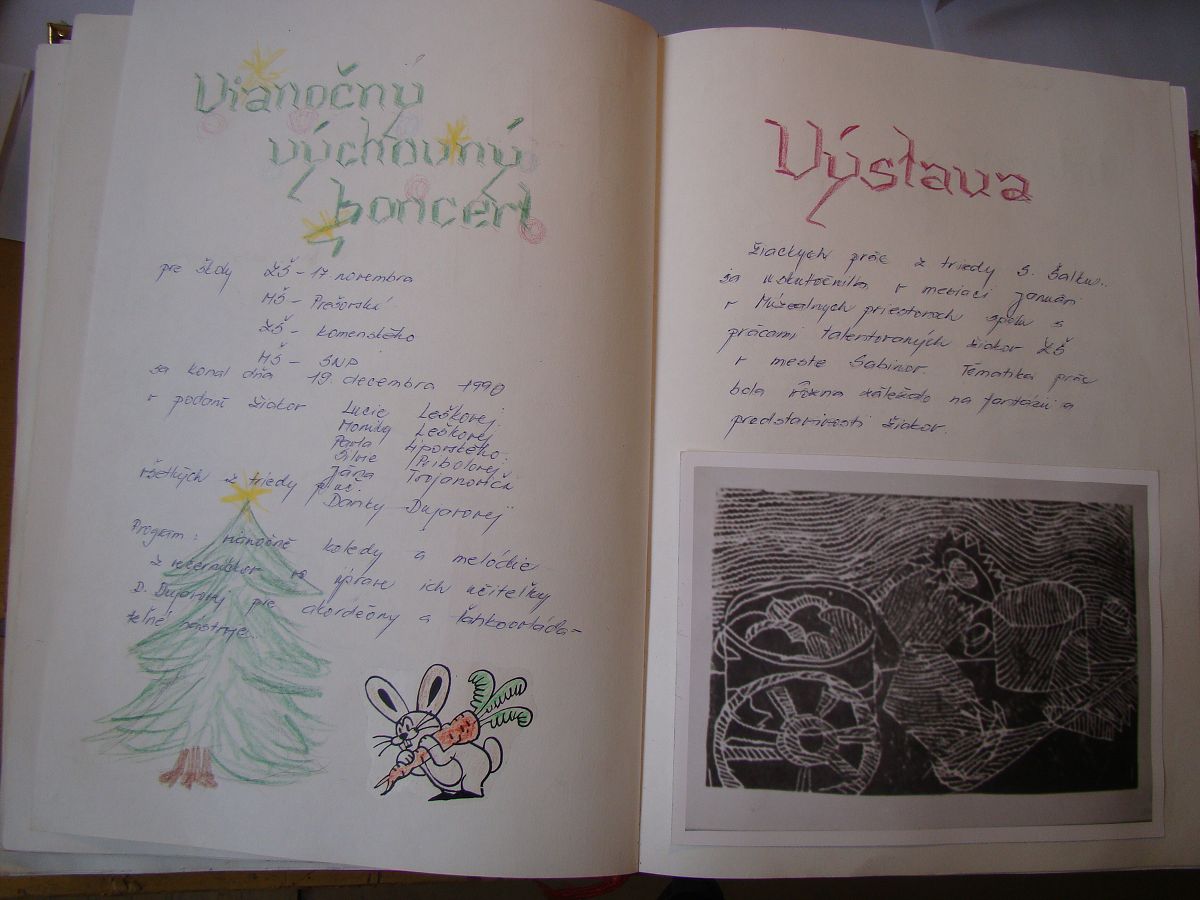 Vianočný
výchovný
koncert
pre školy ZŠ - 17. novembra
MŠ - Prešovská
ZŠ - Komenského
MŠ - SNP
sa konal dňa 19. decembra 1990
v podaní žiakov Lucie Leškovej
Moniky Leškovej
Pavla Liporského.
Silvie Pribolovej
Jána Trojanoviča
všetkých z triedy p. uč.
Danky Dujavovej
Program: vianočné koledy a melódie
z večerníčkov vo úprave ich učiteľky
D. Dujavovej pre akordeóny a ľahkoovláda-
teľné nástroje.
Výstava
žiackych prác z triedy S. Šalku..
sa uskutočnila v mesiaci januári
v Múzealnych priestoroch spolu s
prácami talentovaných žiakov ZŠ
v meste Sabinov. Tématika prác
bola rôzna záležalo na fantázii a
predstavivosti žiakov.